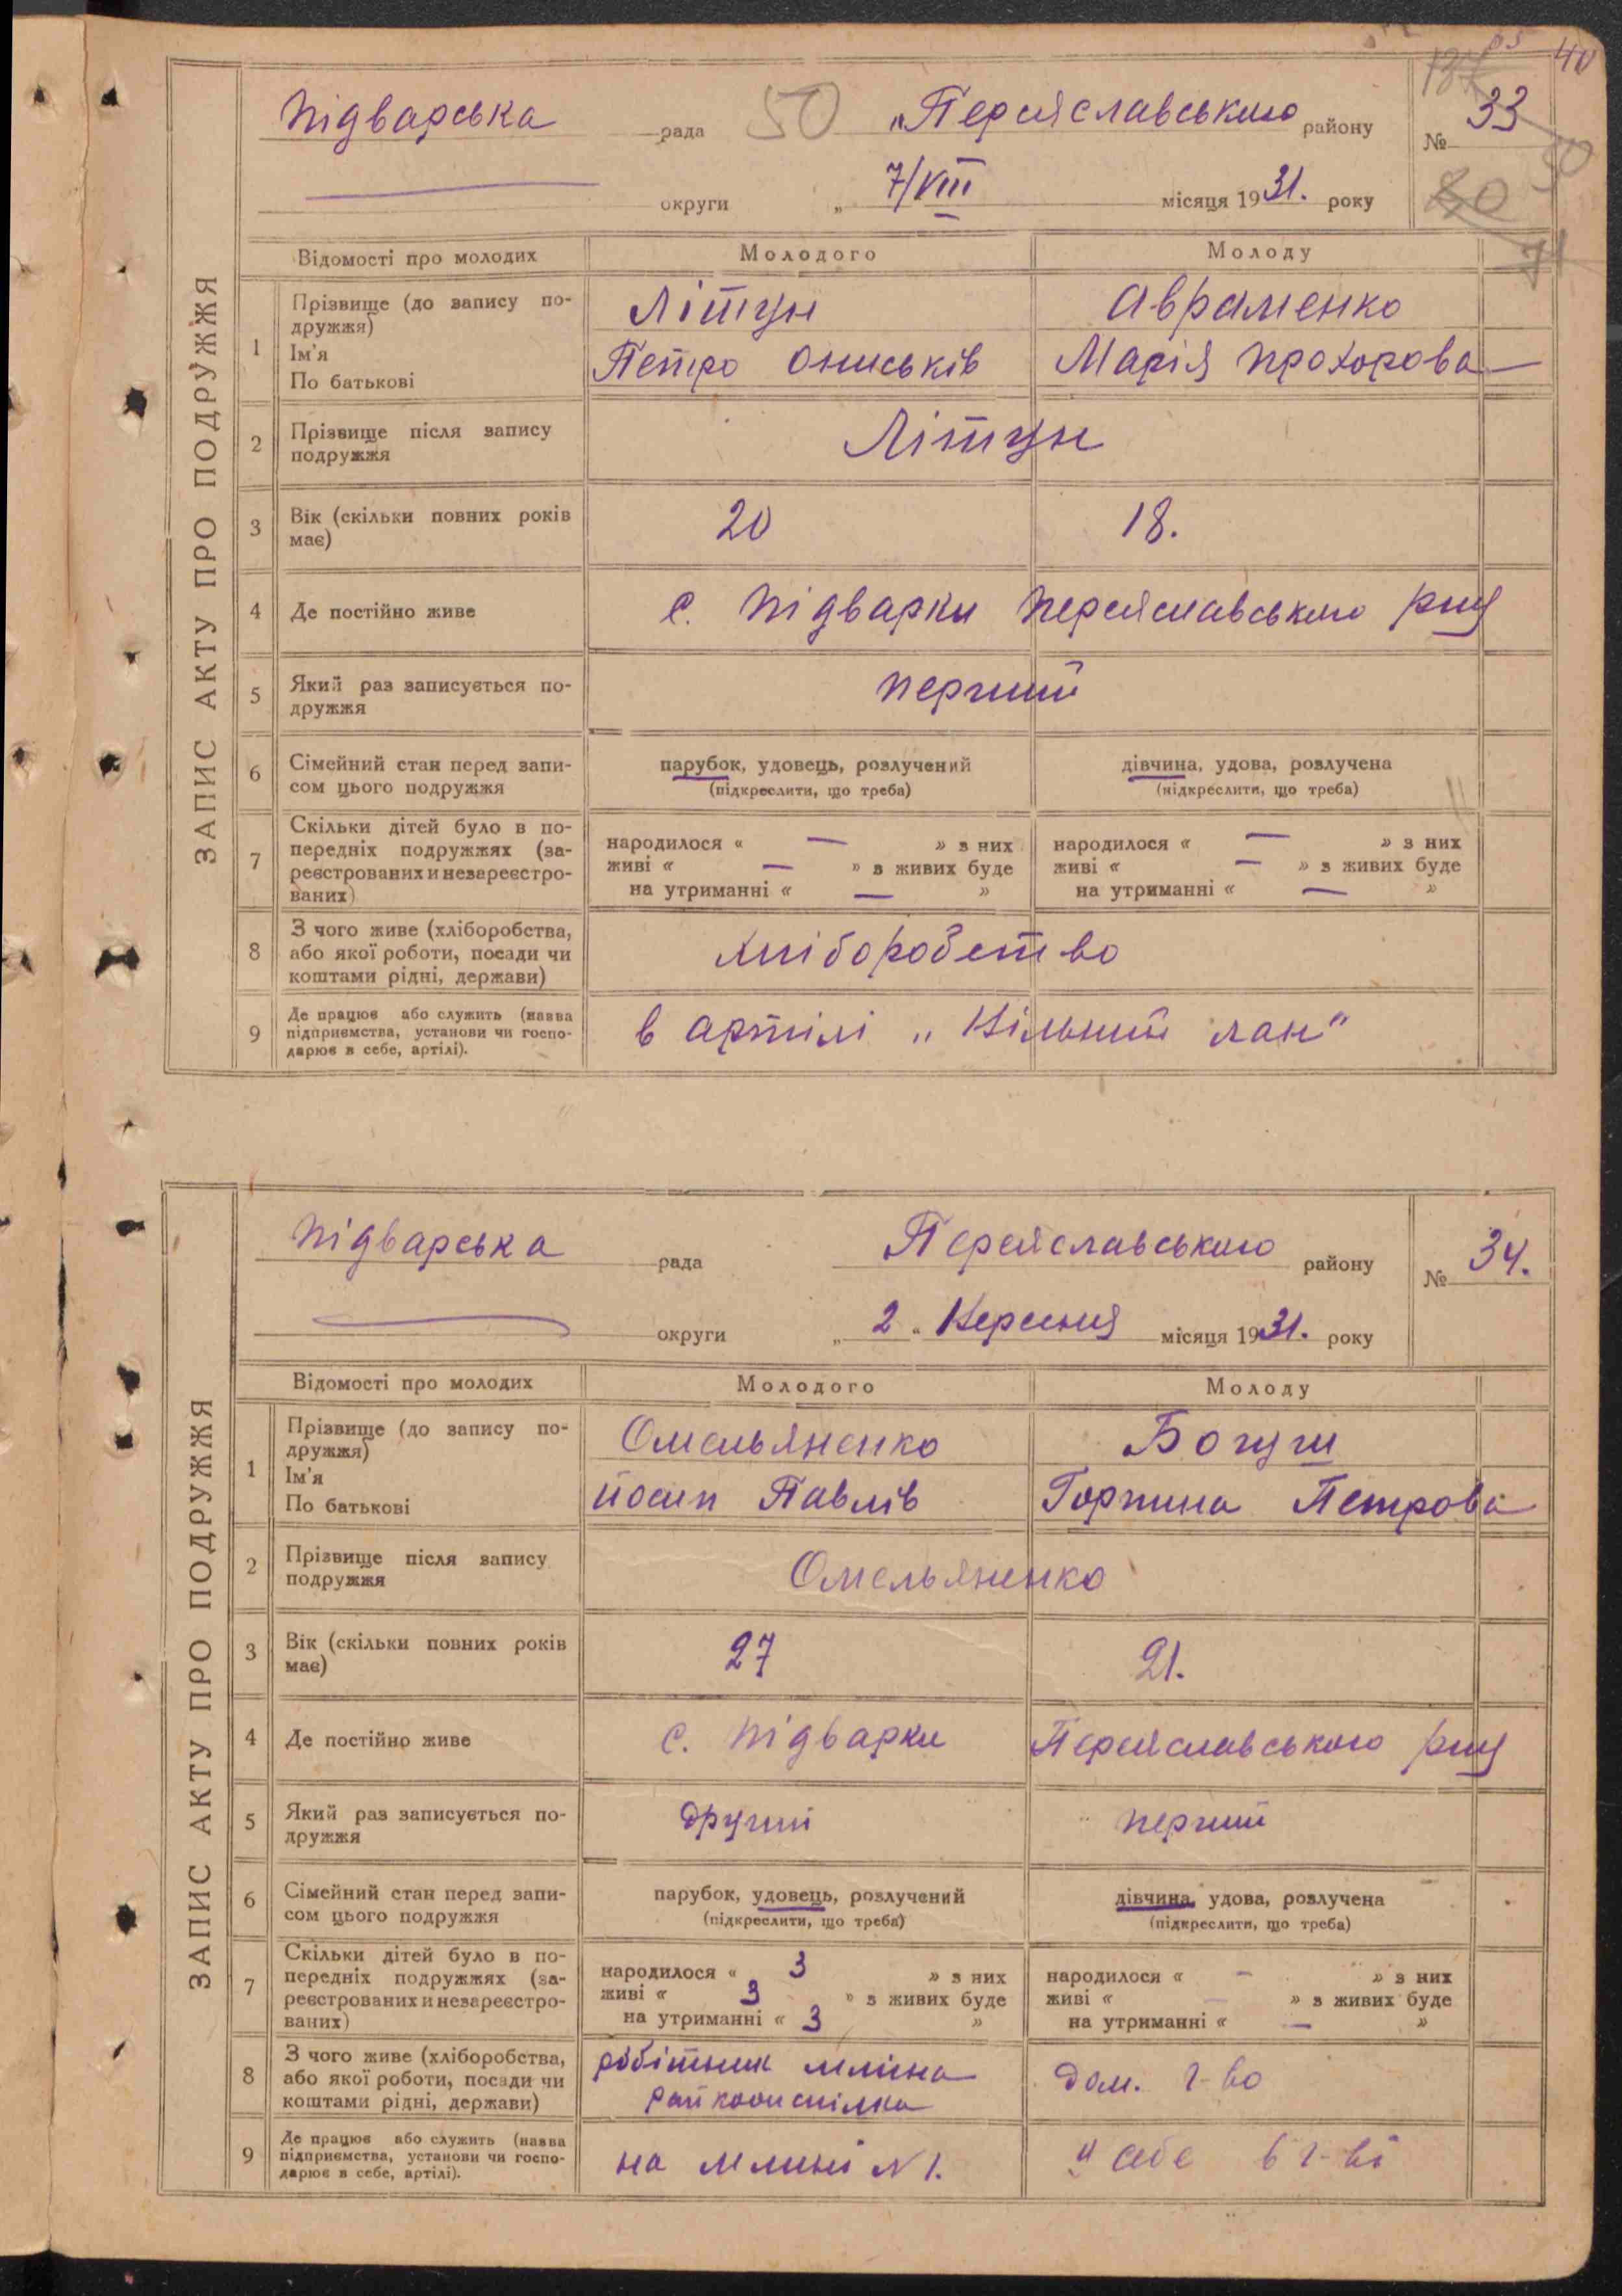 40
Підварська рада 50 „Переяславського району № 33
округи „ 7/VIII місяця 1931. року
ЗАПИС АКТУ ПРО ПОДРУЖЖЯ
Відомості про молодих Молодого Молоду
1 Прізвище (до запису по-
дружжя)
Літун Авраменко
Ім'я
По батькові
Петро Ониськів Марія Прохорова
2 Прізвище після запису
подружжя
Літун
3 Вік (скільки повних років
має)
20 18.
4 Де постійно живе с. Підварки Переяславського р-ну
5 Який раз записується по-
дружжя
перший
6 Сімейний стан перед запи-
сом цього подружжя
парубок, удовець, розлучений дівчина, удова, розлучена
(підкреслити, що треба) (підкреслити, що треба)
7 Скільки дітей було в по-
передніх подружжях (за-
реєстрованих и незареєстро-
ваних)
народилося « — » з них народилося « — » з них
живі « — » з живих буде живі « — » з живих буде
на утриманні « — » на утриманні « — »
8 З чого живе (хліборобства,
або якої роботи, посади чи
коштами рідні, держави)
хліборобство
9 Де працює або служить (назва
підприємства, установи чи госпо-
дарює в себе, артілі).
в артілі „Вільний лан"
Підварська рада Переяславського району № 34.
округи „ 2 „ Вересня місяця 1931. року
ЗАПИС АКТУ ПРО ПОДРУЖЖЯ
Відомості про молодих Молодого Молоду
1 Прізвище (до запису по-
дружжя)
Омельяненко Богуш
Ім'я
По батькові
Йосип Павлів Горпина Петрова
2 Прізвище після запису
подружжя
Омельяненко
3 Вік (скільки повних років
має)
27 21.
4 Де постійно живе с. Підварки Переяславського р-ну
5 Який раз записується по-
дружжя
другий перший
6 Сімейний стан перед запи-
сом цього подружжя
парубок, удовець, розлучений дівчина, удова, розлучена
(підкреслити, що треба) (підкреслити, що треба)
7 Скільки дітей було в по-
передніх подружжях (за-
реєстрованих и незареєстро-
ваних)
народилося « 3 » з них народилося « — » з них
живі « 3 » з живих буде живі « — » з живих буде
на утриманні « 3 » на утриманні « — »
8 З чого живе (хліборобства,
або якої роботи, посади чи
коштами рідні, держави)
робітник млина дом. г-во
райкоопспілка
9 Де працює або служить (назва
підприємства, установи чи госпо-
дарює в себе, артілі).
на млині N 1. у себе в г-ві